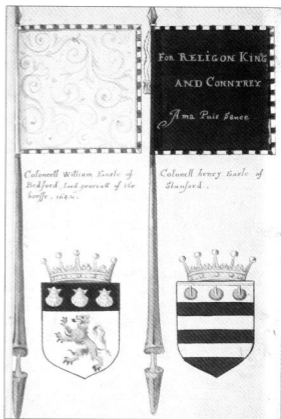 For Religon King
and Conntrey
A ma Puis sance
Colonell William Earle of
Bedford, Lord generall of the
horsse. 1642.
Colonell henry Earle of
Stanford.